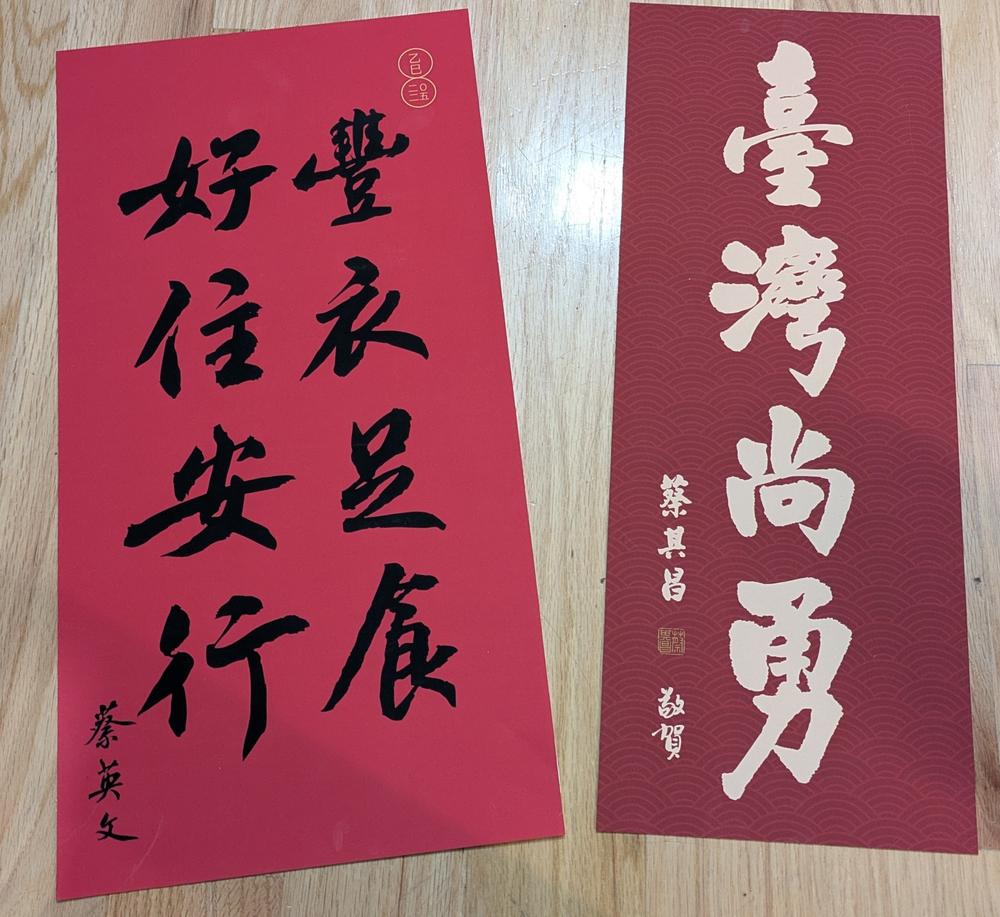 乙巳
二〇二五
豐衣足食
好住安行
蔡英文
臺灣尚勇
蔡其昌
敬賀